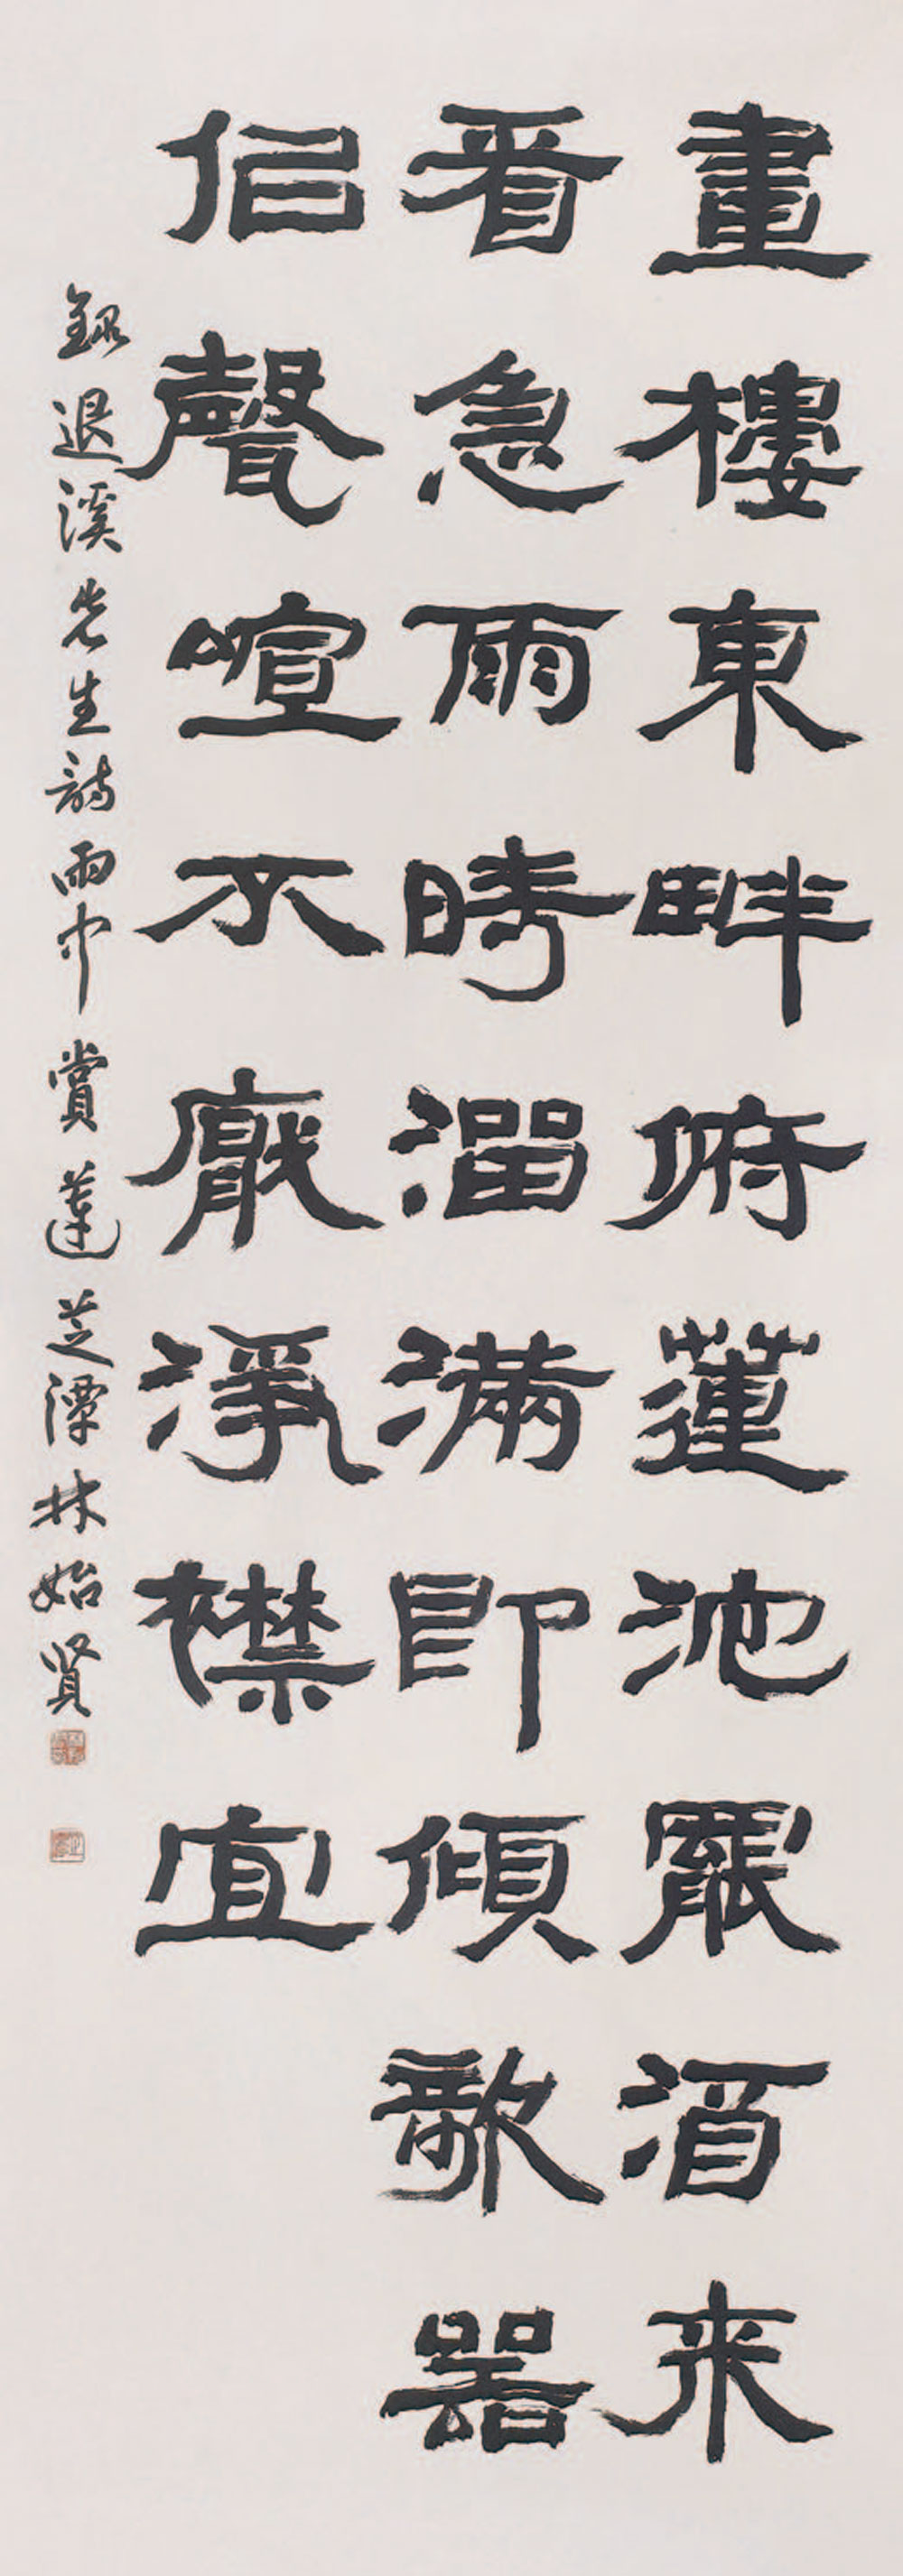 畫樓東畔俯蓮池罷酒來
看急雨時溜滿即傾欹器
似聲喧不厭淨襟宜
錄退溪先生詩雨中賞蓮 芝潭 林始賢